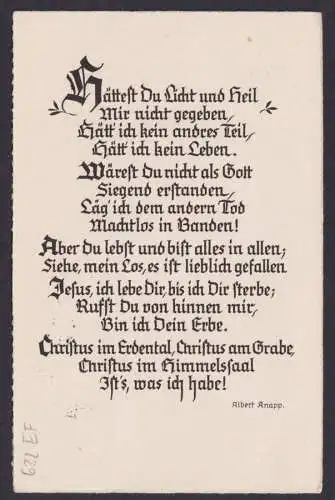 Hättest Du Licht und Heil
Mir nicht gegeben,
Hätt' ich kein andres Teil,
Hätt' ich kein Leben.
Wärest Du nicht als Gott
Siegend erstanden,
Läg' ich dem andern Tod
Machtlos in Banden!
Aber du lebst und bist alles in allen;
Siehe, mein Los, es ist lieblich gefallen
Jesus, ich lebe Dir, bis ich Dir sterbe;
Rufst Du von hinnen mir,
Bin ich Dein Erbe.
Christus im Erdental, Christus am Grabe,
Christus im Himmelssaal
Ist's, was ich habe!
Albert Knapp.